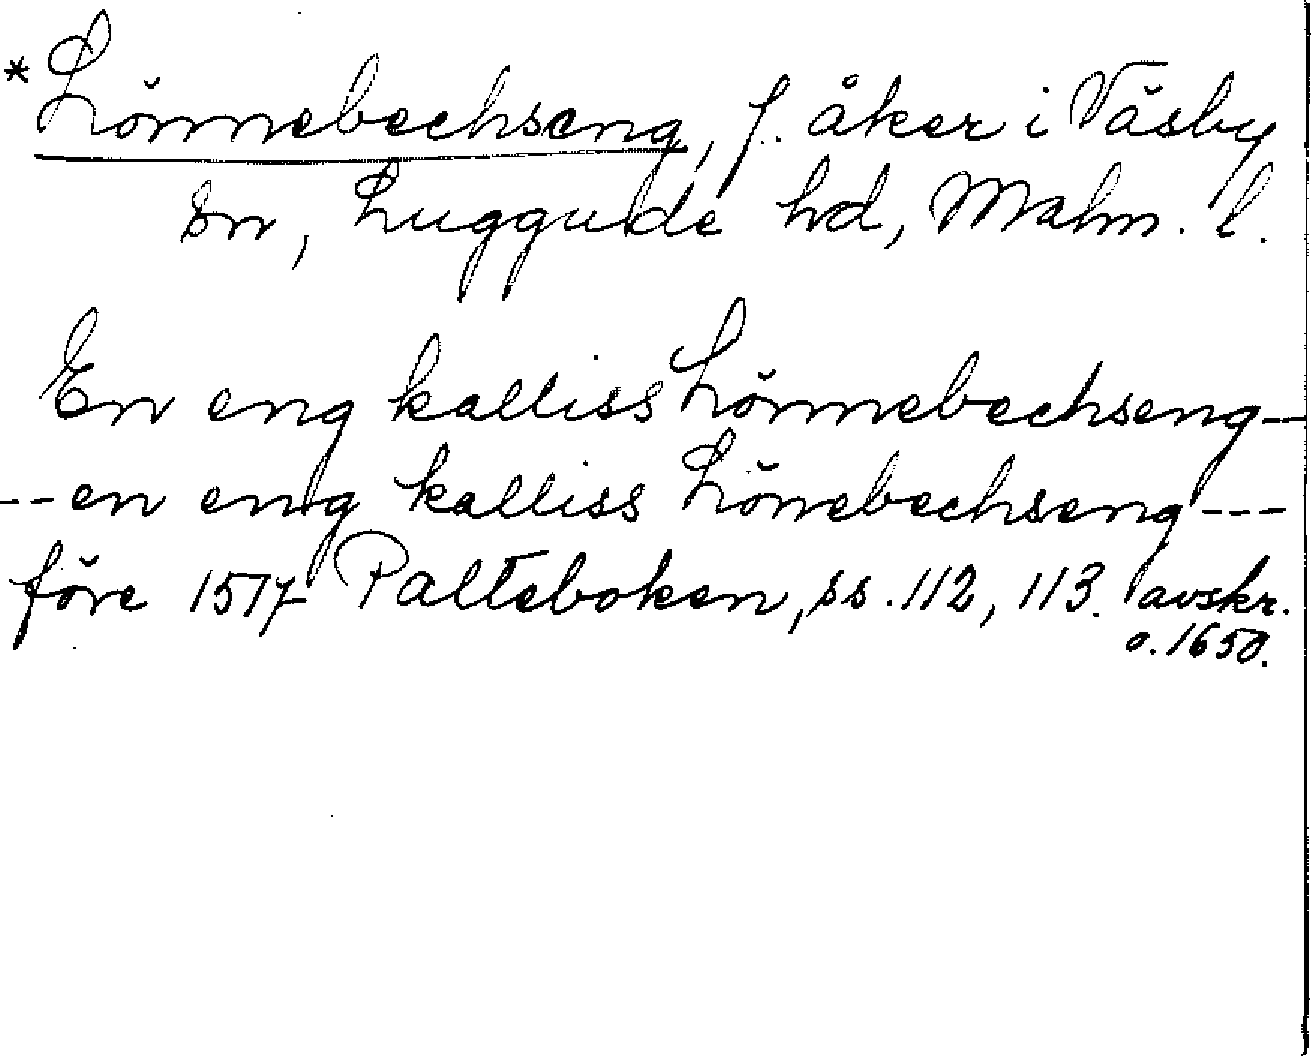 *Lönnebechseng, f. åker i Väsby
sn, Luggude hd, Malm. l.
En eng kalliss Lönnebechseng-
--en eng kalliss Lönebechseng---
före 1517 Palteboken, ss. 112, 113. avskr.
o. 1650.